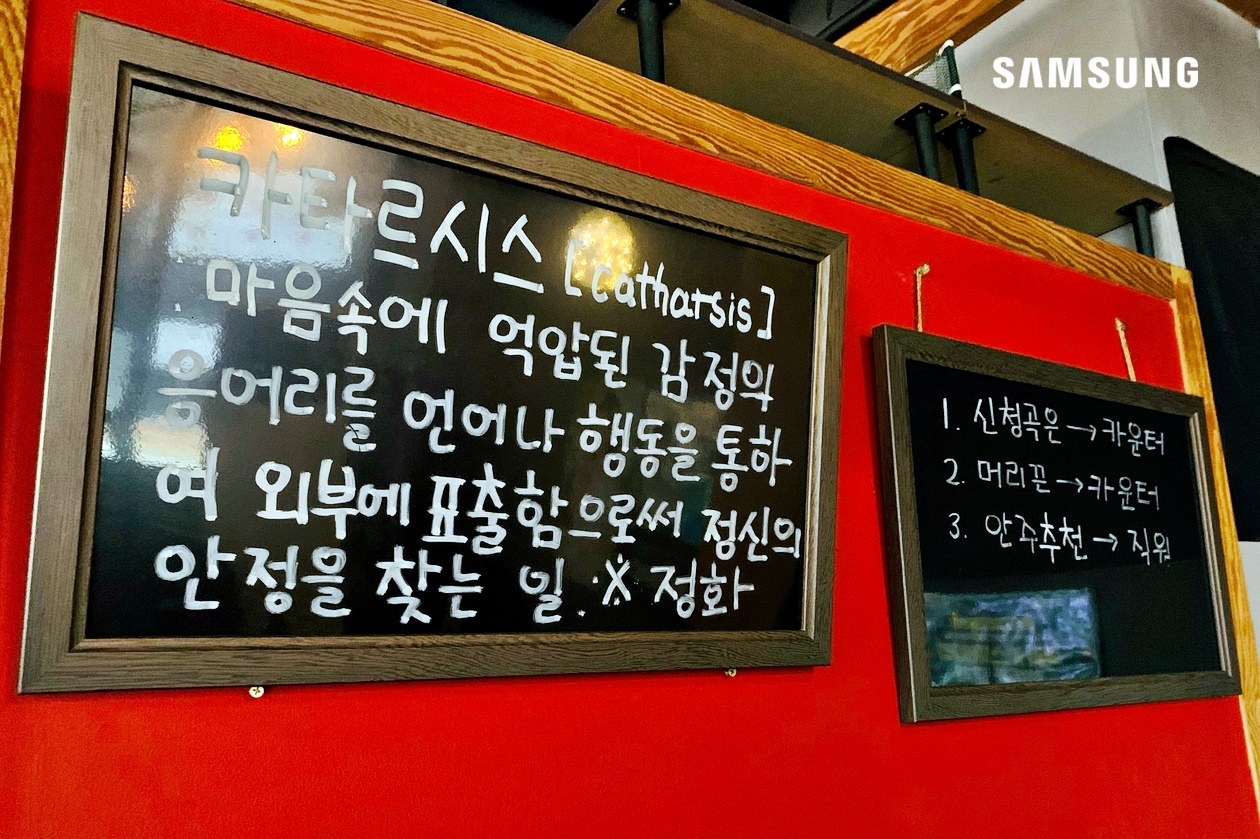 SAMSUNG
카타르시스 [catharsis]
마음속에 억압된 감정의
응어리를 언어나 행동을 통하
여 외부에 표출함으로써 정신의
안정을 찾는 일. ※ 정화
1. 신청곡은 → 카운터
2. 머리끈 → 카운터
3. 안주추천 → 직원